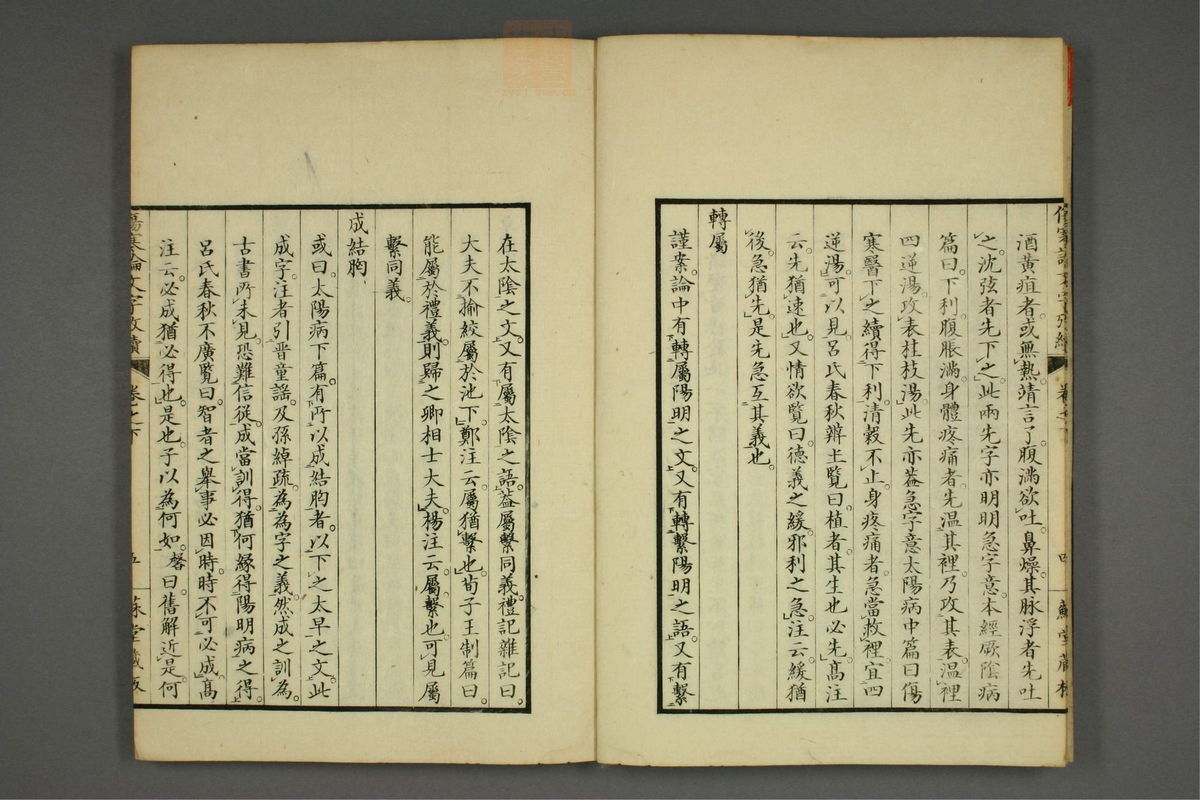 酒黃疸者或無熱靖言了腹滿欲吐鼻燥其脉浮者先吐
之沈弦者先下之此兩先字亦明明急字意本經厥陰病
篇曰下利腹脹滿身體疼痛者先溫其裡乃攻其表溫裡
四逆湯攻表桂枝湯此先亦葢急字意太陽病中篇曰傷
寒醫下之續得下利清穀不止身疼痛者急當救裡宜四
逆湯可以見呂氏春秋辨土覽曰植者其生也必先高注
云先猶速也又情欲覽曰德義之緩邪利之急注云緩猶
後急猶先是先急互其義也
轉屬
謹案論中有轉屬陽明之文又有轉繫陽明之語又有繫
在太陰之文又有屬太陰之語葢屬繫同義禮記雜記曰
大夫不揄絞屬於池下鄭注云屬猶繫也荀子王制篇曰
能屬於禮義則歸之卿相士大夫楊注云屬繫也可見屬
繫同義
成結胸
或曰太陽病下篇有所以成結胸者以下之太早之文此
成字注者引晋童謠及孫綽疏為為字之義然成之訓為
古書所未見恐難信從成當訓得猶何緣得陽明病之得
呂氏春秋不廣覽曰智者之舉事必因時時不可必成高
注云必成猶必得也是也子以為何如磬曰舊解近是何
傷寒論文字攷續 卷之下 五